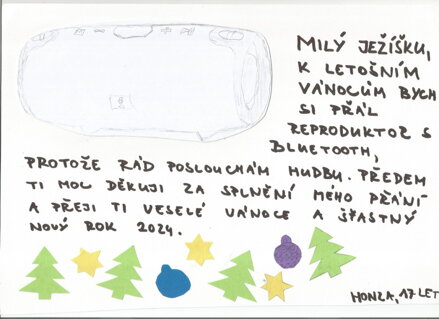 MILÝ JEŽÍŠKU,
K LETOŠNÍM
VÁNOCŮM BYCH
SI PŘÁL
REPRODUKTOR S
BLUETOOTH,
PROTOŽE RÁD POSLOUCHÁM HUDBU. PŘEDEM
TI MOC DĚKUJI ZA SPLNĚNÍ MÉHO PŘÁNÍ
A PŘEJI TI VESELÉ VÁNOCE A ŠŤASTNÝ
NOVÝ ROK 2024.
HONZA, 17 LET